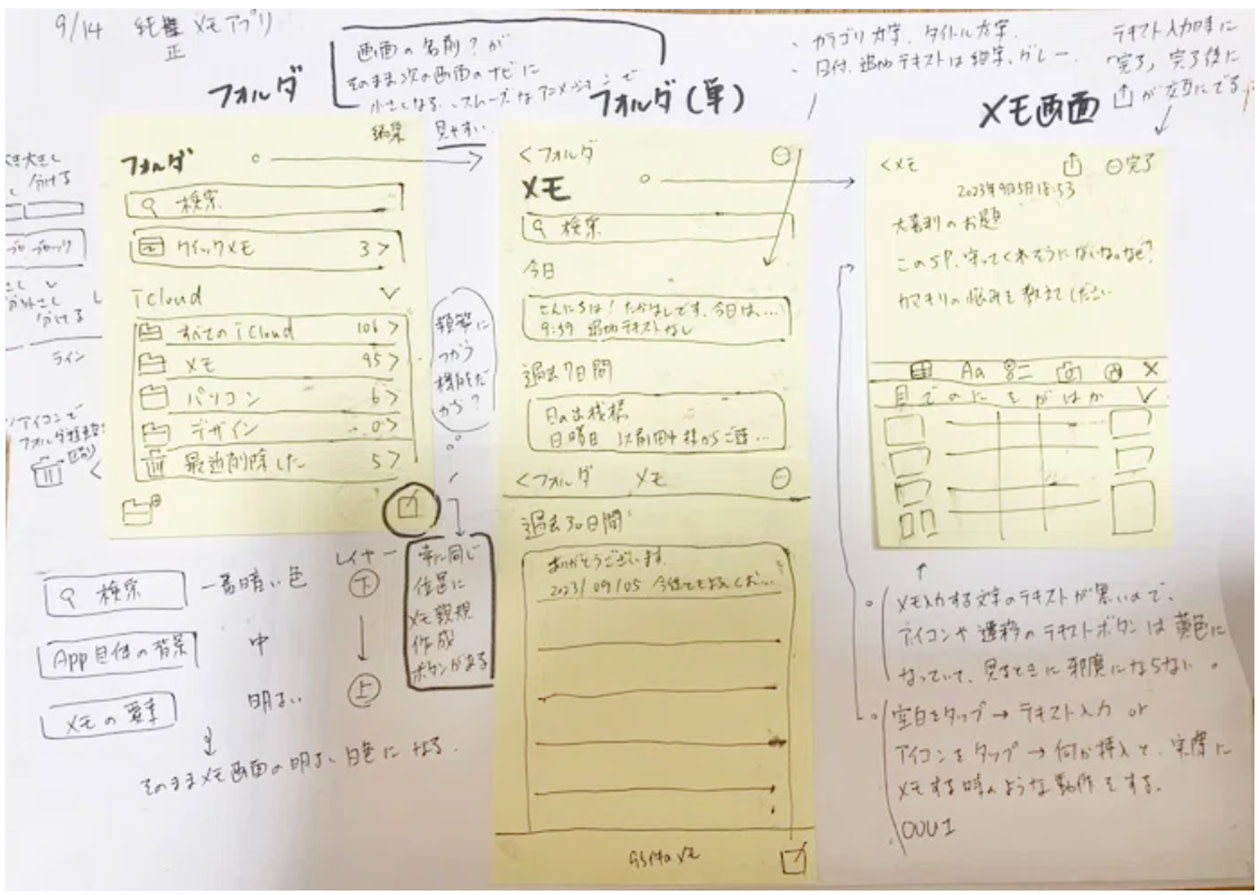 9/14 純正 メモアプリ
画面の名前?が
そのまま次の画面のナビに
小さくなる、スムーズなアニメーションで
見やすい
・カテゴリ 太字、タイトル 太字、
・日付、追加テキストは細字、グレー、
テキスト入力時に
「完了」、完了後に
が左にでる
フォルダ
フォルダ(単)
メモ画面
編集
フォルダ
検索
クイックメモ 3 >
iCloud
すべての iCloud 106 >
メモ 95 >
パソコン 6 >
デザイン 0 >
最近削除した 5 >
頻繁に
つかう
機能だ
から?
常に同じ
位置に
メモ新規
作成
ボタンがある
<フォルダ
メモ
検索
今日
こんにちは! たかはしです。今日は、...
9:59 追加テキストなし
過去7日間
日の出桟橋
日曜日
<フォルダ メモ
過去30日間
ありがとうございます。
2023/09/05 今後ともよろしくお...
95件のメモ
<メモ 完了
2023年9月5日 18:53
大喜利のお題
このSP、守ってくれそうにないな。なぜ?
カマキリの悩みを教えてください
Aa
目 で の に を が は か
分ける
分ける
ライン
アイコンで
検索 一番暗い色
App自体の背景 中
メモの要素 明るい
レイヤー
下
上
そのままメモ画面の明るい白色になる。
メモ入力する文字のテキストが黒いので、
アイコンや遷移のテキストボタンは黄色に
なっていて、見るときに邪魔にならない。
空白をタップ→テキスト入力 or
アイコンをタップ→何か挿入で、実際に
メモする時のような動作をする。
OOUI